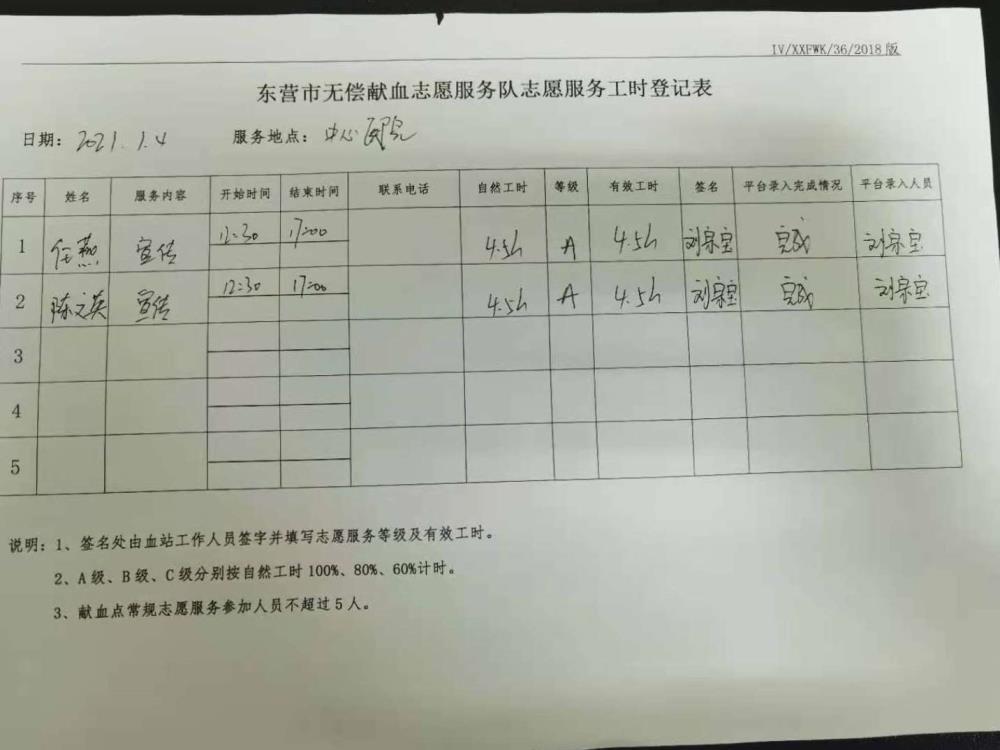 IV/XXFWK/36/2018版
东营市无偿献血志愿服务队志愿服务工时登记表
日期: 2021.1.4 服务地点: 中心医院
序号 姓名 服务内容 开始时间 结束时间 联系电话 自然工时 等级 有效工时 签名 平台录入完成情况 平台录入人员
1 任燕 宣传 12:30 17:00 4.5h A 4.5h 刘宗宝 完成 刘宗宝
2 陈文英 宣传 12:30 17:00 4.5h A 4.5h 刘宗宝 完成 刘宗宝
3
4
5
说明: 1、签名处由血站工作人员签字并填写志愿服务等级及有效工时。
2、A级、B级、C级分别按自然工时100%、80%、60%计时。
3、献血点常规志愿服务参加人员不超过5人。